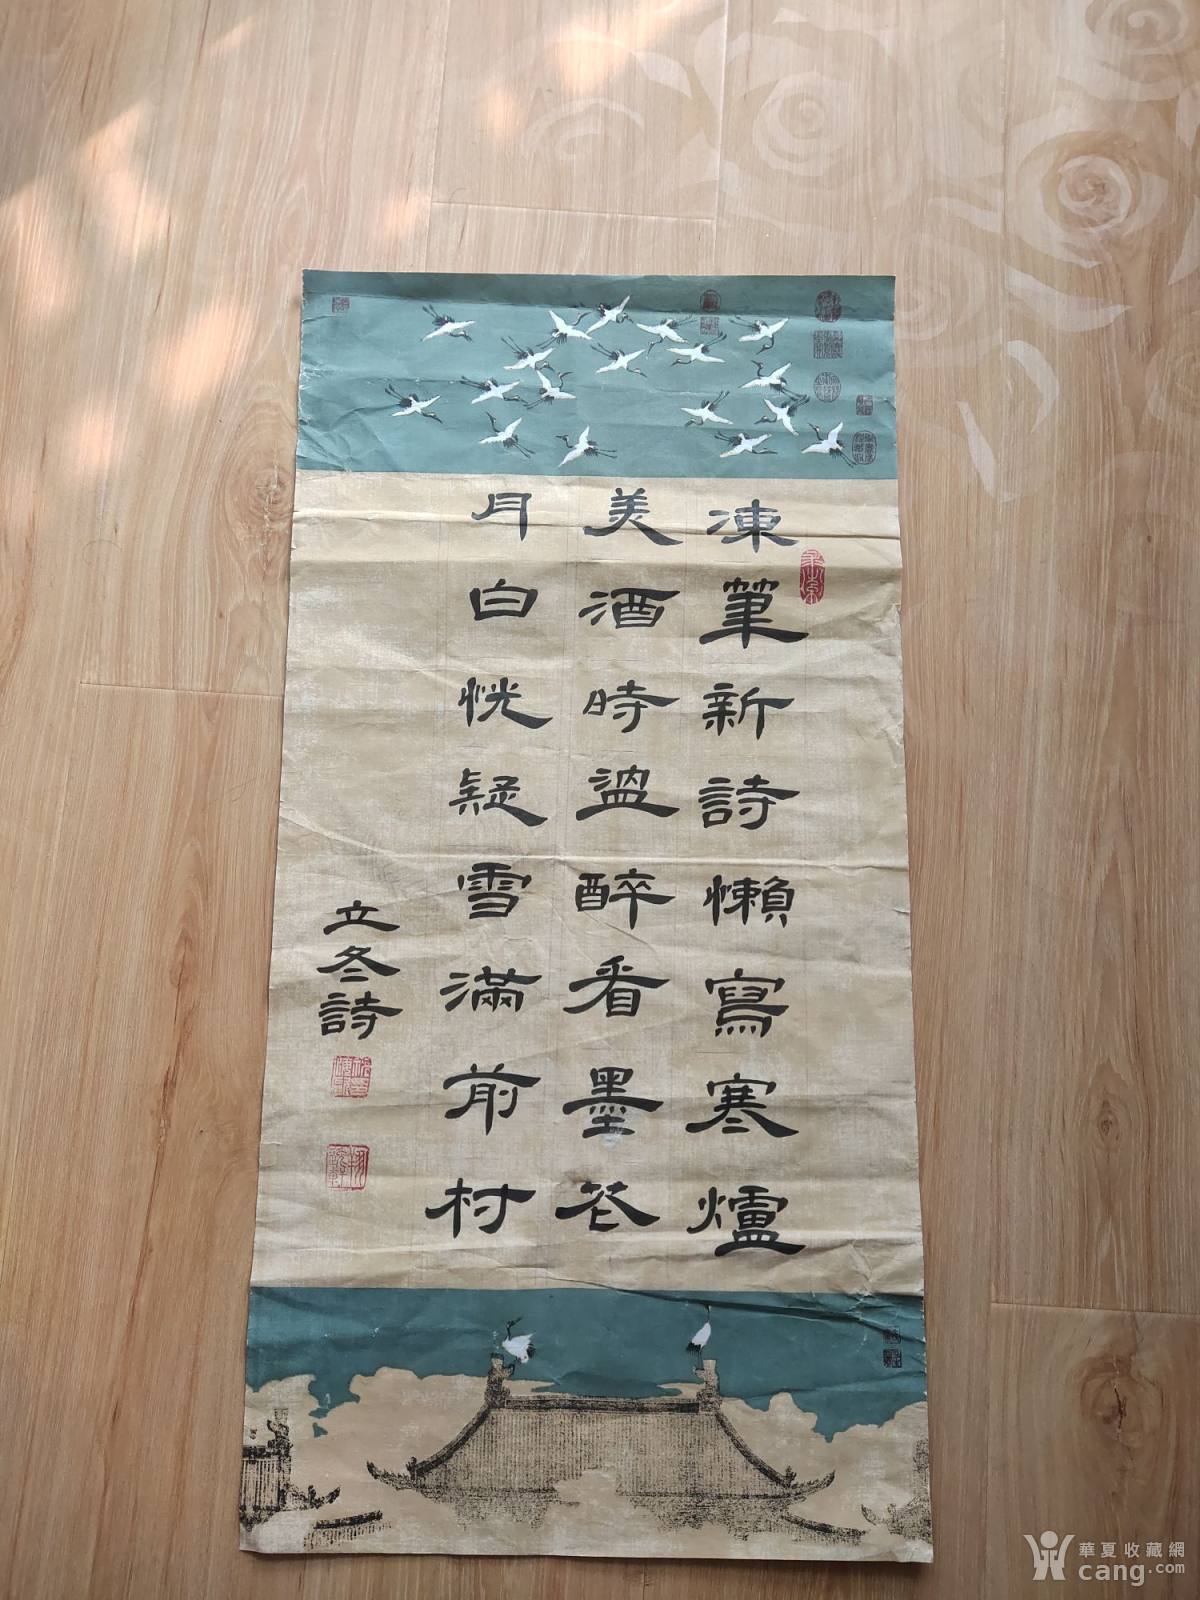 凍筆新詩懶寫寒爐
美酒時溫醉看墨花
月白恍疑雪滿前村
立冬詩
華夏收藏網
cang.com